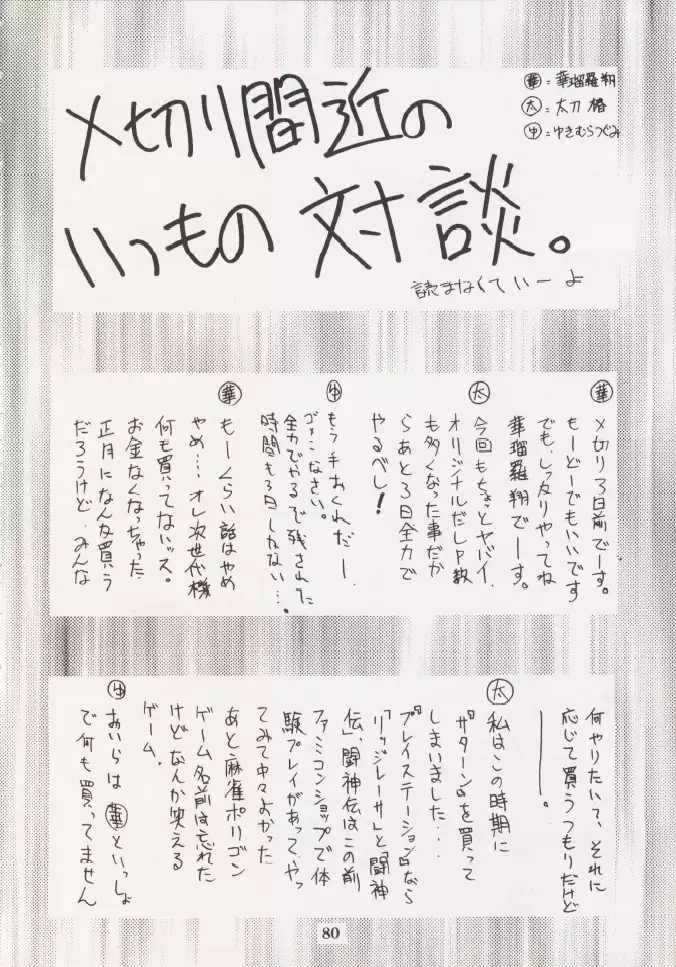 〆切り間近の
いつもの対談。
読まなくていーよ
華=華瑠羅翔
太=太刀 椿
ゆ=ゆきむらつぐみ
華
〆切り3日前でーす。
もーどーでもいいです
でも、しっかりやってね
華瑠羅翔でーす。
太
今回もちょっとヤバイ、
オリジナルだしP数
も多くなった事だか
らあと3日全力で
やるべし!
ゆ
もう手おくれだー、
ごめんなさい。
全力でやるで残された
時間も3日しかない…。
華
もーくらい話はやめ
やめ…オレ次世代機
何も買ってないッス。
お金なくなっちゃった
正月になんか買う
だろうけど、みんな
何やりたいて、それに
応じて買うつもりだけど
――。
太
私はこの時期に
『サターン』を買って
しまいました…
『プレイステーション』なら
「リッジレーサ」と闘神
伝、闘神伝はこの前
ファミコンショップで体
験プレイがあって、やっ
てみて中々よかった
あと麻雀ポリゴン
ゲーム名前は忘れた
けどなんか笑える
ゲーム.
ゆ
おいらは華といっしょ
で何も買ってません
80